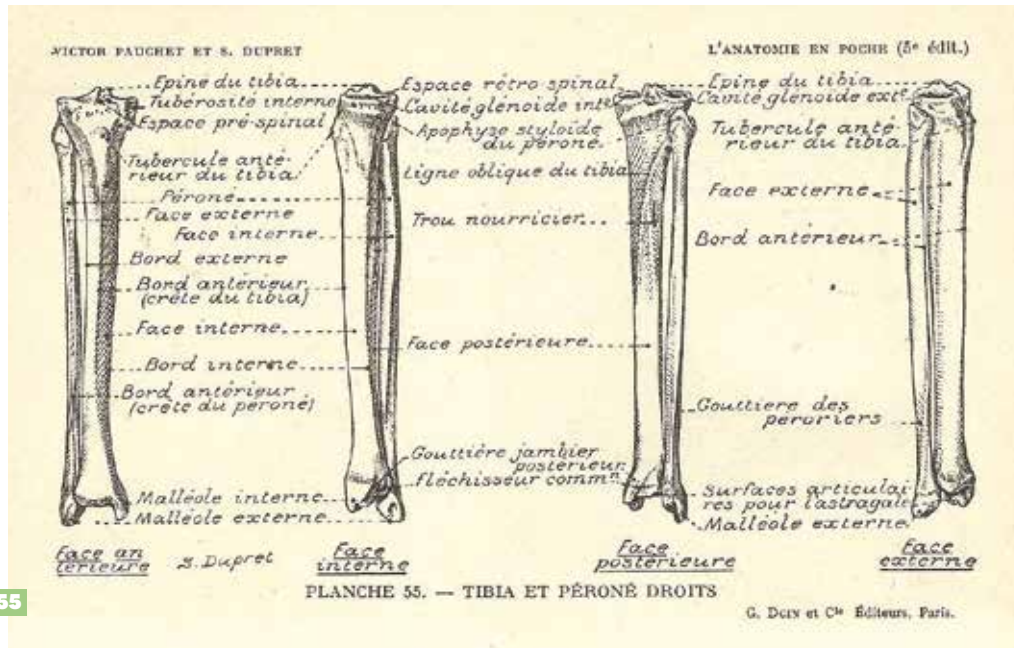 VICTOR PAUCHET ET S. DUPRET
L'ANATOMIE EN POCHE (5e édit.)
Epine du tibia
Tubérosité interne
Espace pré-spinal
Tubercule anté-
rieur du tibia
Péroné
Face externe
Face interne
Bord externe
Bord antérieur
(crête du tibia)
Face interne
Bord interne
Bord antérieur
(crête du péroné)
Malléole interne
Malléole externe
Espace rétro spinal
Cavité glénoide inte
Apophyse styloïde
du péroné
Ligne oblique du tibia
Trou nourricier
Face postérieure
Gouttière jambier
postérieur
fléchisseur commn
Epine du tibia
Cavité glénoide exte
Tubercule anté-
rieur du tibia
Face externe
Bord antérieur
Gouttiere des
peroniers
Surfaces articulai
res pour l'astragale
Malléole externe
Face an
térieure
S. Dupret
Face
interne
Face
postérieure
Face
externe
55
PLANCHE 55. — TIBIA ET PÉRONÉ DROITS
G. DOIN et Cie Éditeurs, Paris.